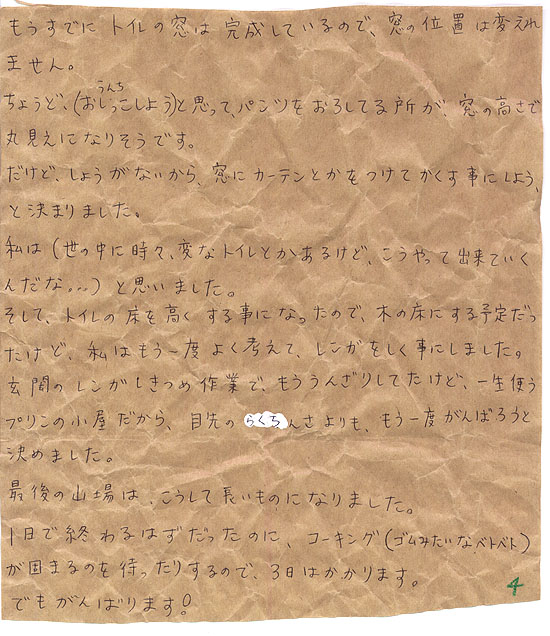 もうすでにトイレの窓は完成しているので、窓の位置は変えれ
ません。
うんち
ちょうど、(おしっこしよう)と思って、パンツをおろしてる所が、窓の高さで
丸見えになりそうです。
だけど、しょうがないから、窓にカーテンとかをつけてかくす事にしよう、
と決まりました。
私は(世の中に時々、変なトイレとかあるけど、こうやって出来ていく
んだな。。。)と思いました。
そして、トイレの床を高くする事になったので、木の床にする予定だっ
たけど、私はもう一度よく考えて、レンガをしく事にしました。
玄関のレンガしきつめ作業で、もううんざりしてたけど、一生使う
プリンの小屋だから、目先のらくちんさよりも、もう一度がんばろうと
決めました。
最後の山場は、こうして長いものになりました。
1日で終わるはずだったのに、コーキング(ゴムみたいなベトベト)
が固まるのを待ったりするので、3日はかかります。
でもがんばります!
4